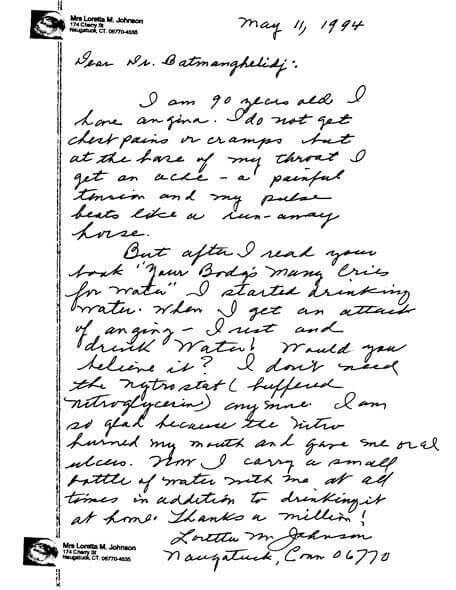 Mrs Loretta M. Johnson
174 Cherry St
Naugatuck, CT. 06770-4535
May 11, 1994
Dear Dr. Batmanghelidj:
I am 90 years old I
have angina. I do not get
chest pains or cramps but
at the base of my throat I
get an ache - a painful
tension and my pulse
beats like a run-away
horse.
But after I read your
book "Your Body's Many Cries
for Water" I started drinking
Water. When I get an attack
of angina - I rest and
drink Water! Would you
believe it? I don't need
the nytrostat (buffered
nitroglycerin) anymore. I am
so glad because the nitro
burned my mouth and gave me oral
ulcers. Now I carry a small
bottle of water with me at all
times in addition to drinking it
at home. Thanks a million!
Loretta M Johnson
Naugatuck, Conn 06770
Mrs Loretta M. Johnson
174 Cherry St
Naugatuck, CT. 06770-4535